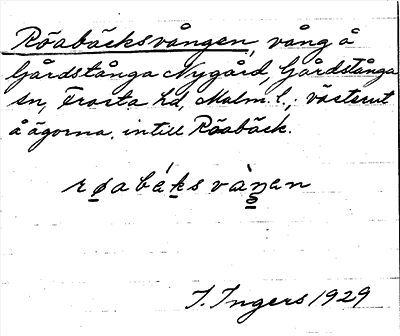 Röabäcksvången, vång å
Gårdstånga Nygård, Gårdstånga
sn, Frosta hd, Malm. l.; västerut
å ägorna, intill Röabäck.
røabæ̀ks vàŋen
I. Ingers 1929